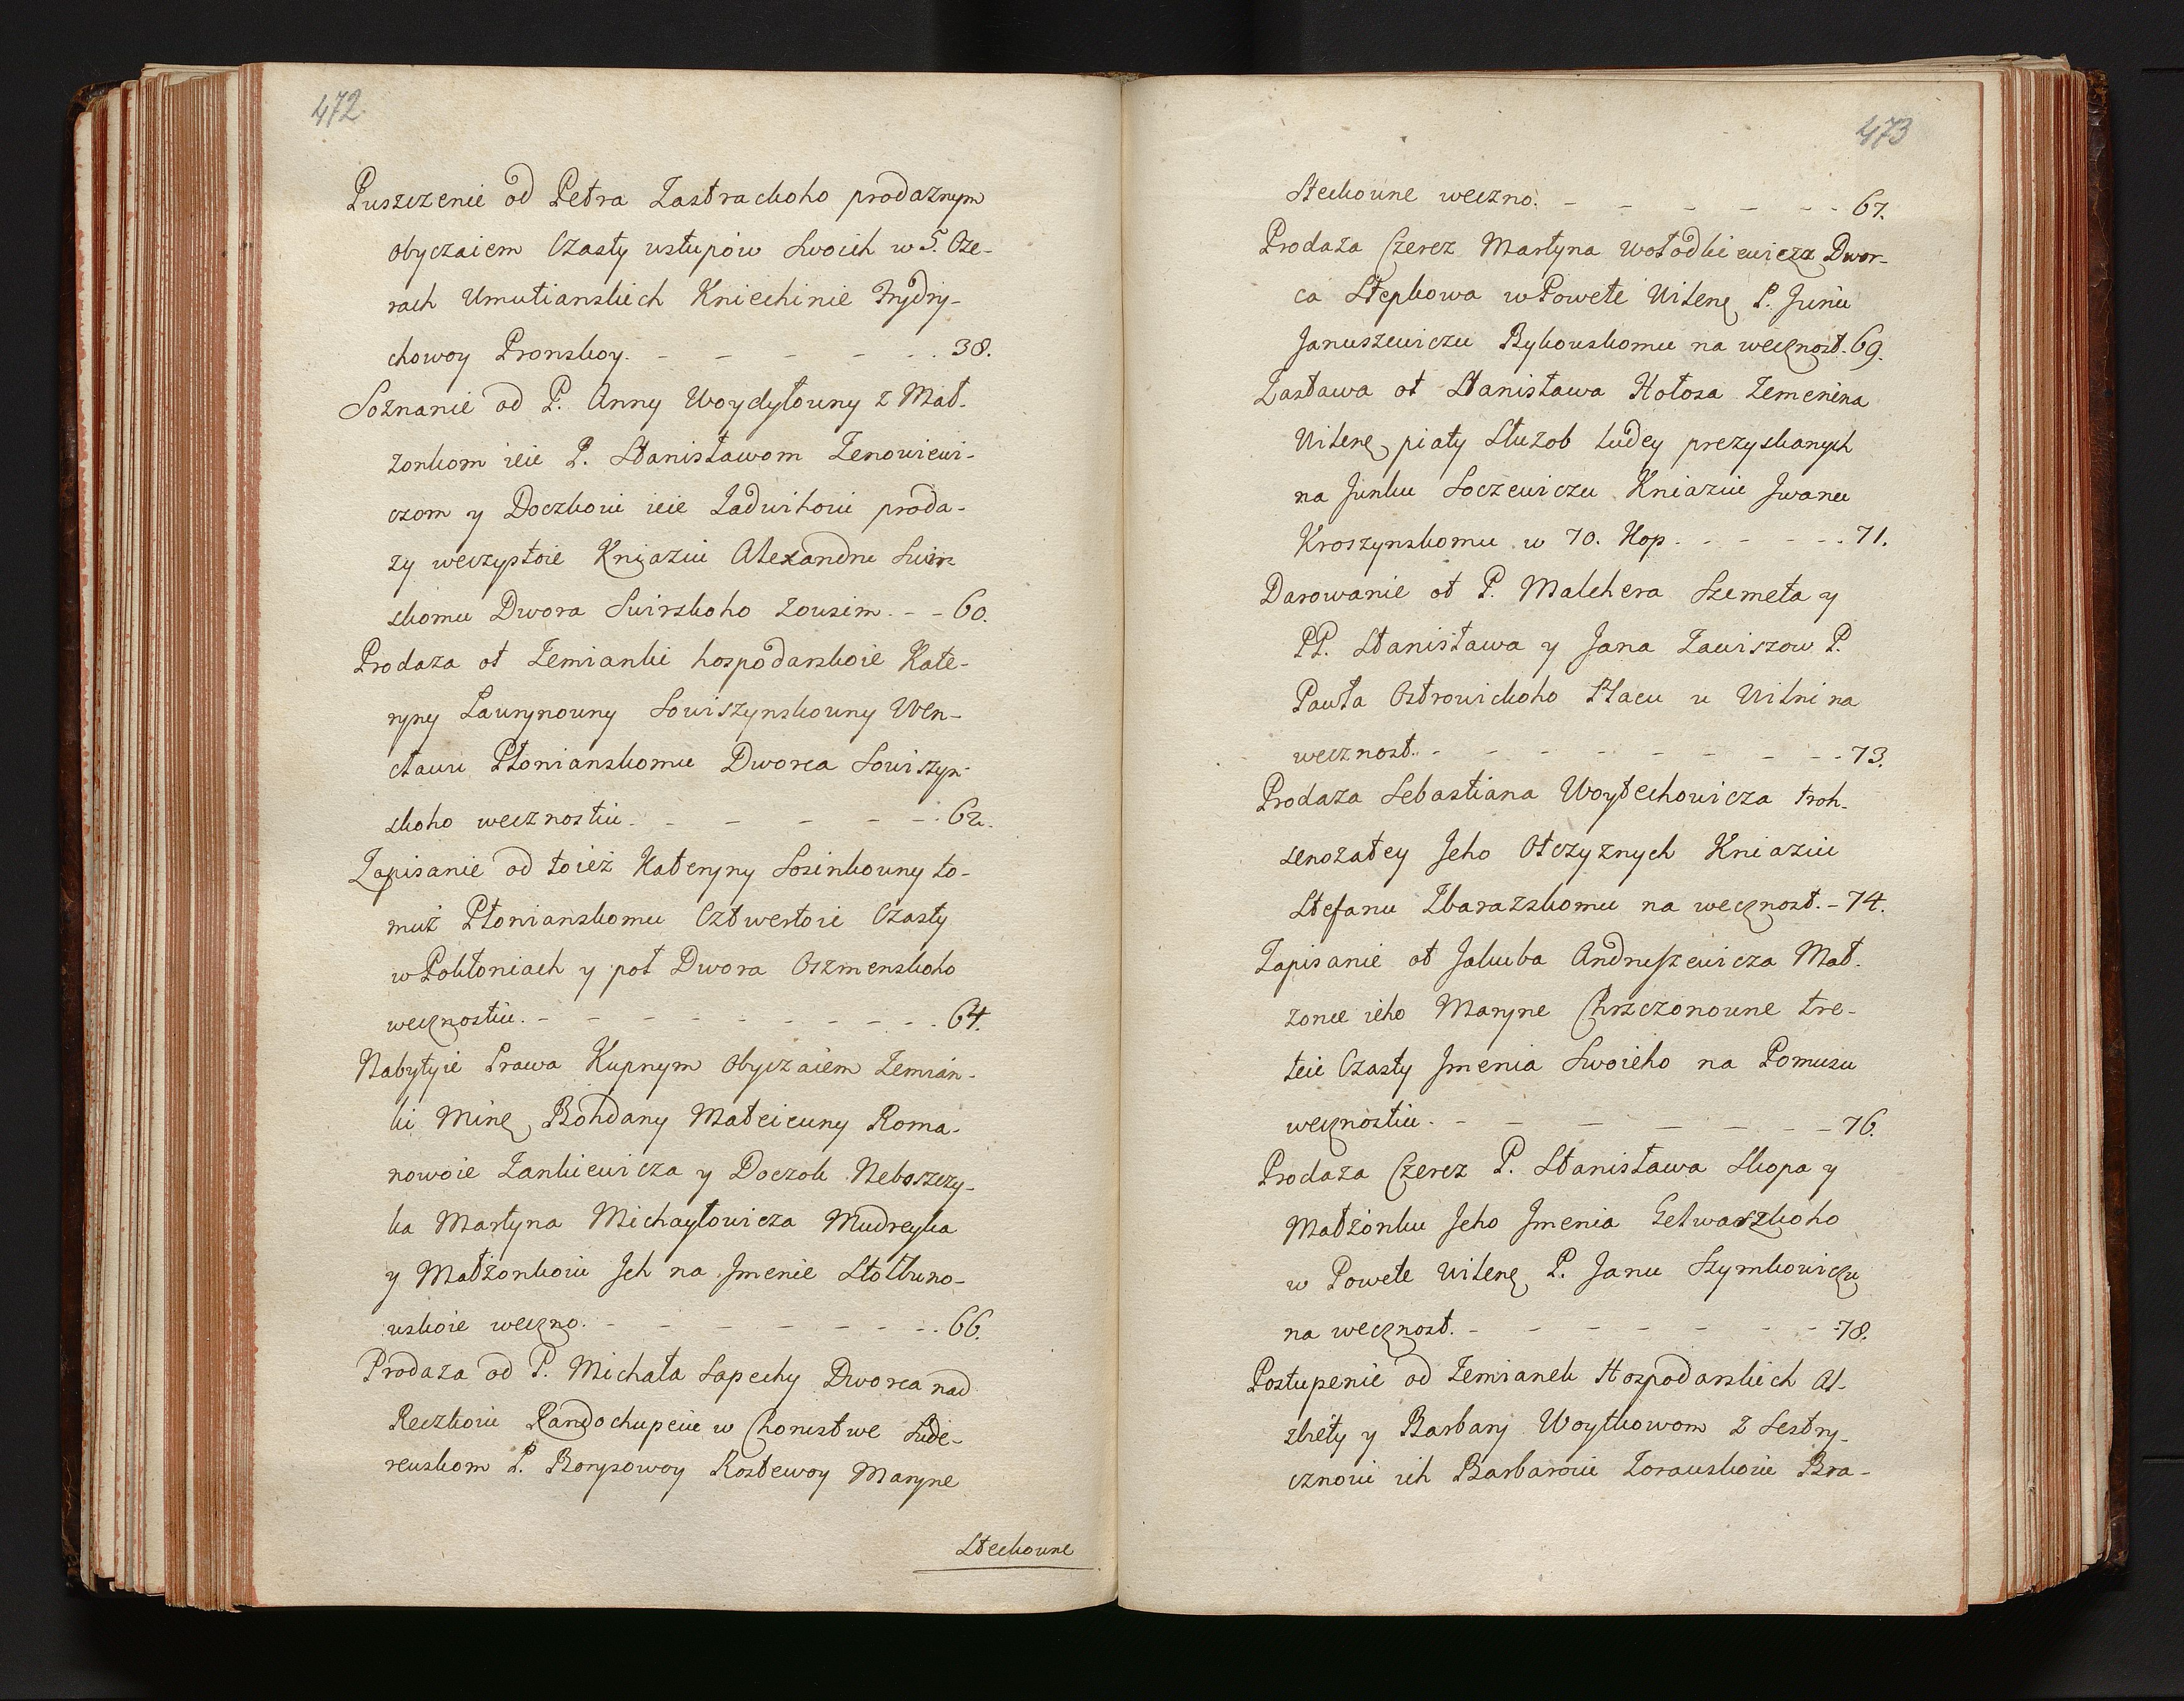 472
Puszczenie od Petra Zastrackoho prodaznym
obyczaiem Czasty wstupów Swoich w 5. Oze-
rach Umutianskich Kniechinie Frydry-
chowoy Pronskoy. - - - - - - . 38.
Soznanie od P. Anny Woydyłowny z Mał-
zonkom ieie P. Stanisławom Zenowiewi-
czom y Doczkoiu ieie Jadwihoiu proda-
zy weczystoie Kniaziu Alexandru Swir-
skomu Dwora Swirskoho zowsim. - - 60.
Prodaza ot Zemianki hospodarskoie Kate-
ryny Lawrynowny Sowiszynskowny Wen-
cławu Płonianskomu Dworca Sowiszyn-
skoho wecznostiu. - - - - - - . 62.
Zapisanie od toież Kateryny Sosinkowny to-
muż Płonianskomu Cztwertoie Czasty
w Pokłoniach y poł Dwora Oszmenskoho
wecznostiu. - - - - - - - - - . 64.
Nabytyie Prawa Kupnym obyczaiem Zemian-
ki Minę Bohdany Mateiewny Roma-
nowoie Zankiewicza y Doczok Neboszczy-
ka Martyna Michayłowicza Mudreyka
y Małżonkoiu Jch na Jmenie Stołbuno-
wskoie weczno. - - - - - - - - . 66.
Prodaza od P. Michała Sapehy Dworca nad
Reczkoiu Randochupeiu w Choristwe Side-
rewskom P. Borysowoy Kostewoy Maryne
Steckowne
473
Steckowne weczno. - - - - - - - 67.
Prodaza Czerez Martyna Wołodkiewicza Dwor-
ca Stepkowa w Powete Wilenę P. Juriu
Januszewiczu Bykowskomu na wecznost. 69.
Zastawa ot Stanisława Hołosa Zemenina
Wilenę piaty Służob ludey prezyskanych
na Junku Soczewiczu Kniaziu Jwanu
Kroszynskomu w 70. Kop. - - - - - . 71.
Darowanie ot P. Malchera Szemeta y
PP. Stanisława y Jana Zawiszow P.
Pawła Ostrowickoho Płacu u Wilni na
wecznost. - - - - - - - - - 73.
Prodaza Sebastiana Woytechowicza troh-
senozatey Jeho Otczyznych Kniaziu
Stefanu Zbarazskomu na wecznost. - 74.
Zapisanie ot Jakuba Andruszewicza Mał-
zonce ieho Maryne Chrszczonowne tre-
teie Czasty Jmenia Swoieho na Pomuszu
wecznostiu. - - - - - - - - 76.
Prodaza Czerez P. Stanisława Skopa y
Małżónku Jeho Jmenia Gelwaszkoho
w Powete Wilenę P. Janu Szymkowiczu
na wecznost. - - - - - - - - 78.
Postupenie od Zemianek Hospodarskich Al-
zbiety y Barbary Woytkowom z Sestry-
cznoiu ich Barbaroiu Zorawskoiu Bra-